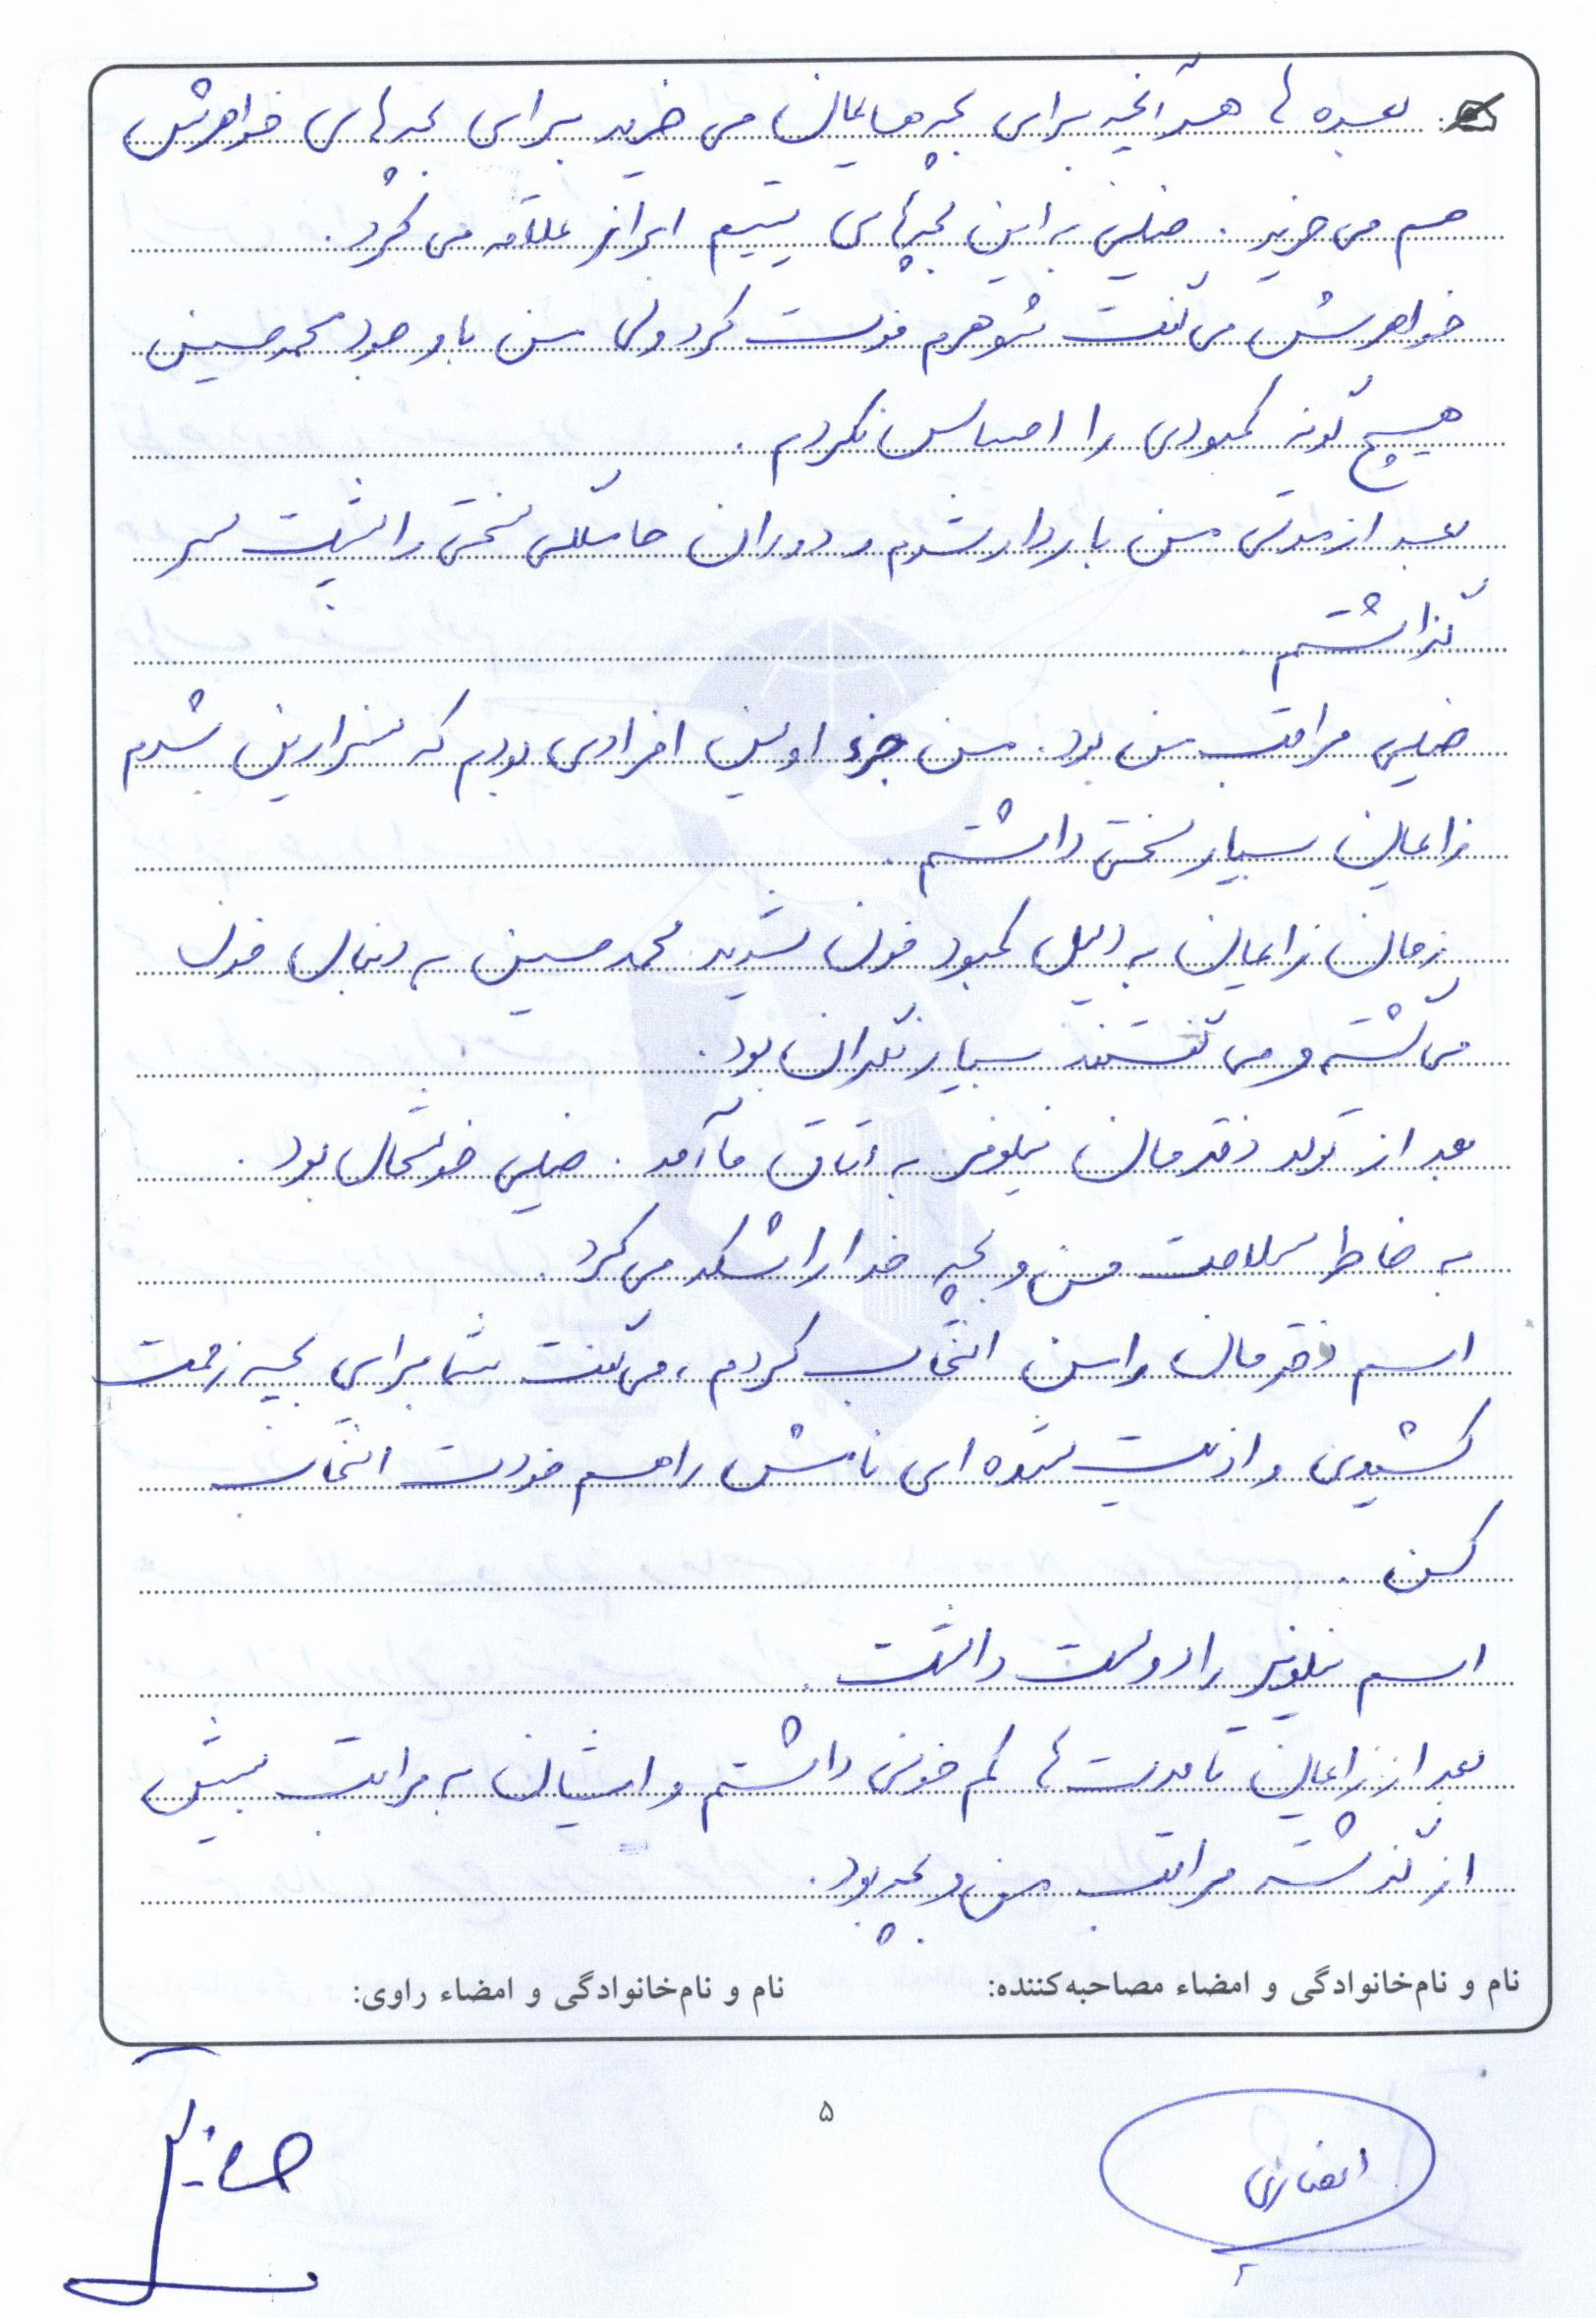 بعدها هر آنچه برای بچه‌هایمان می خرید برای بچه های خواهرش
هم می خرید. خیلی به این بچه‌های یتیم ابراز علاقه می کرد.
خواهرش می گفت شوهرم فوت کرد ولی من با وجود محمدحسین
هیچ گونه کمبودی را احساس نکردم.
بعد از مدتی من باردار شدم و دوران حاملگی سختی را پشت سر
گذاشتم
خیلی مراقب من بود. من جزء اولین افرادی بودم که سزارین شدم
زایمان بسیار سختی داشتم.
زمان زایمان به دلیل کمبود خون شدید محمدحسین به دنبال خون
می گشته و می گفتند بسیار نگران بود.
بعد از تولد دخترمان نیلوفر به اتاق ما آمد. خیلی خوشحال بود.
به خاطر سلامت من و بچه خدا را شکر می کرد.
اسم دخترمان را من انتخاب کردم، می گفت شما برای بچه زحمت
کشیدی و اذیت شده ای نامش را هم خودت انتخاب
کن.
اسم نیلوفر را دوست داشت.
بعد از زایمان تا مدت ها کم خونی داشتم و ایشان به مراتب بیش
از گذشته مراقب من و بچه بود.
نام و نام‌خانوادگی و امضاء مصاحبه‌کننده:
نام و نام‌خانوادگی و امضاء راوی:
۵